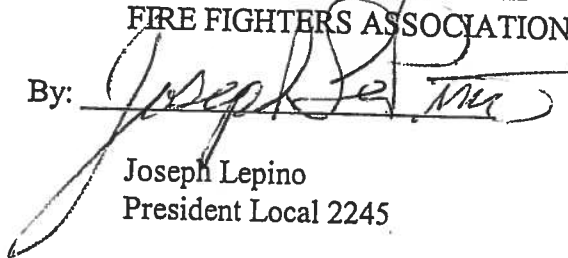 FIRE FIGHTERS ASSOCIATION
By: Joseph
Joseph Lepino
President Local 2245